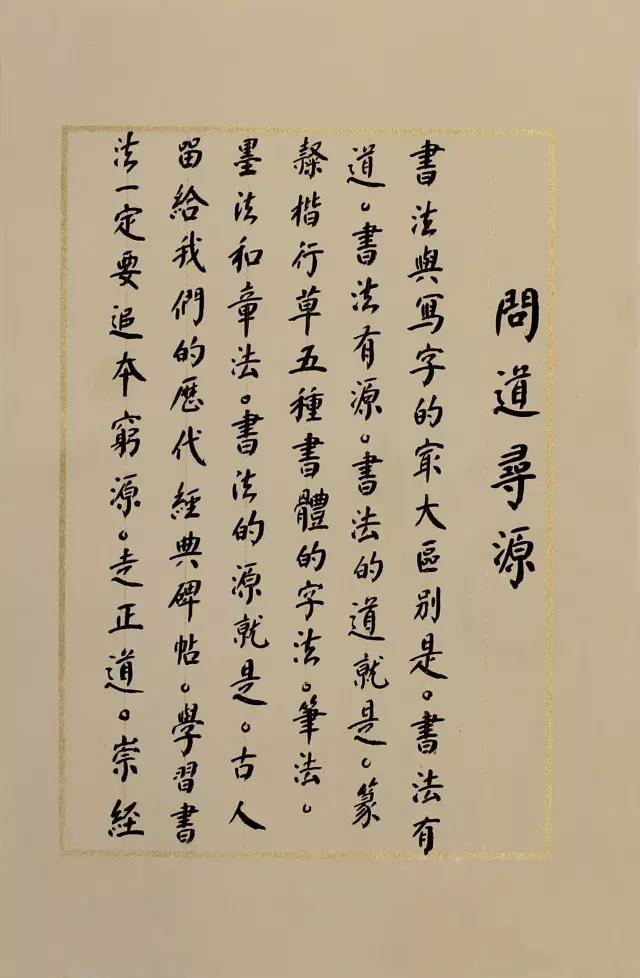 問道尋源
書法與寫字的冣大區别是。書法有
道。書法有源。書法的道就是。篆
隸楷行草五種書體的字法。筆法。
墨法和章法。書法的源就是。古人
留給我們的歷代經典碑帖。學習書
法一定要追本窮源。走正道。崇經